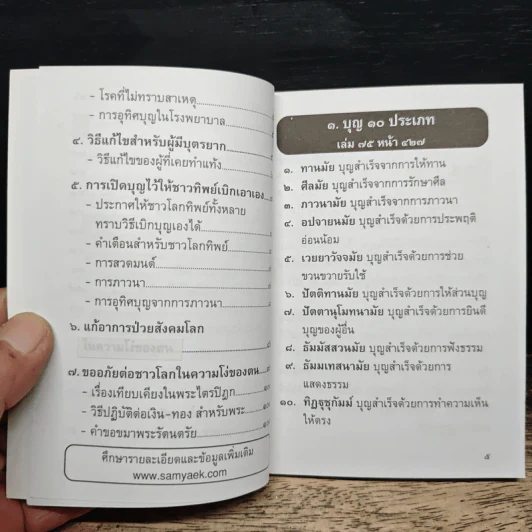 - โรคที่ไม่ทราบสาเหตุ
- การอุทิศบุญในโรงพยาบาล
๔. วิธีแก้ไขสำหรับผู้มีบุตรยาก
- วิธีแก้ไขของผู้ที่เคยทำแท้ง
๕. การเปิดบุญไว้ให้ชาวทิพย์เบิกเอาเอง
- ประกาศให้ชาวโลกทิพย์ทั้งหลาย
ทราบวิธีเบิกบุญเองได้
- คำเตือนสำหรับชาวโลกทิพย์
- การสวดมนต์
- การภาวนา
- การอุทิศบุญจากการภาวนา
๖. แก้อาการป่วยสังคมโลก
ในความโง่ของตน
๗. ขออภัยต่อชาวโลกในความโง่ของตน
- เรื่องเทียบเคียงในพระไตรปิฎก
- วิธีปฏิบัติต่อเงิน-ทอง สำหรับพระ
- คำขอขมาพระรัตนตรัย
ศึกษารายละเอียดและข้อมูลเพิ่มเติม
www.samyaek.com
๑. บุญ ๑๐ ประเภท
เล่ม ๗๕ หน้า ๔๒๗
๑. ทานมัย บุญสำเร็จจากการให้ทาน
๒. ศีลมัย บุญสำเร็จจากการรักษาศีล
๓. ภาวนามัย บุญสำเร็จจากการภาวนา
๔. อปจายนมัย บุญสำเร็จด้วยการประพฤติ
อ่อนน้อม
๕. เวยยาวัจจมัย บุญสำเร็จด้วยการช่วย
ขวนขวายรับใช้
๖. ปัตติทานมัย บุญสำเร็จด้วยการให้ส่วนบุญ
๗. ปัตตานุโมทนามัย บุญสำเร็จด้วยการยินดี
บุญของผู้อื่น
๘. ธัมมัสสวนมัย บุญสำเร็จด้วยการฟังธรรม
๙. ธัมมเทสนามัย บุญสำเร็จด้วยการ
แสดงธรรม
๑๐. ทิฏฐุชุกัมม์ บุญสำเร็จด้วยการทำความเห็น
ให้ตรง
๕